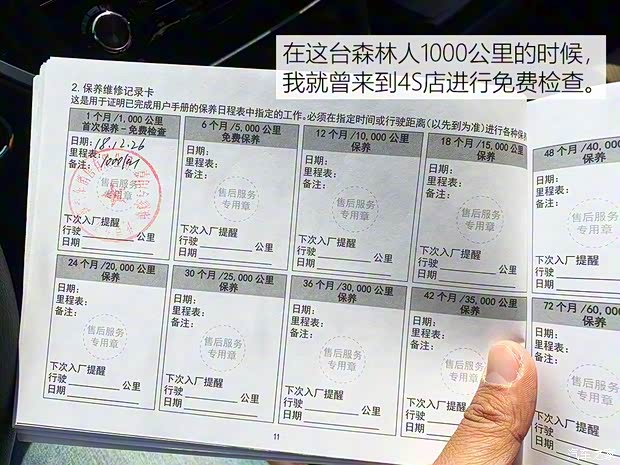 在这台森林人1000公里的时候，
我就曾来到4S店进行免费检查。
2. 保养维修记录卡
这是用于证明已完成用户手册的保养日程表中指定的工作。必须在指定时间或行驶距离(以先到为准)进行各种保养
1 个月 /1, 000 公里
首次保养 - 免费检查
日期: 18.12.26
里程表: 1000km
备注:
下次入厂提醒
行驶 公里
日期
6 个月 /5, 000 公里
免费保养
日期:
里程表:
备注:
售后服务
专用章
下次入厂提醒
行驶 公里
日期
12 个月 /10, 000 公里
保养
日期:
里程表:
备注:
售后服务
专用章
下次入厂提醒
行驶 公里
日期
18 个月 /15, 000 公里
保养
日期:
里程表:
备注:
售后服务
专用章
下次入厂提醒
行驶 公里
日期
48 个月 /40,
保
日期:
里程表:
备注:
售后
专
下次入厂提醒
行驶
日期
24 个月 /20, 000 公里
保养
日期:
里程表:
备注:
售后服务
专用章
下次入厂提醒
行驶 公里
日期
30 个月 /25, 000 公里
保养
日期:
里程表:
备注:
售后服务
专用章
下次入厂提醒
行驶 公里
日期
36 个月 /30, 000 公里
保养
日期:
里程表:
备注:
售后服务
专用章
下次入厂提醒
行驶 公里
日期
42 个月 /35, 000 公里
保养
日期:
里程表:
备注:
售后服务
专用章
下次入厂提醒
行驶
日期
72 个月 /60,
保
日期:
里程表:
备注:
售后
专用
下次入厂提醒
行驶
日期
11
汽车之家